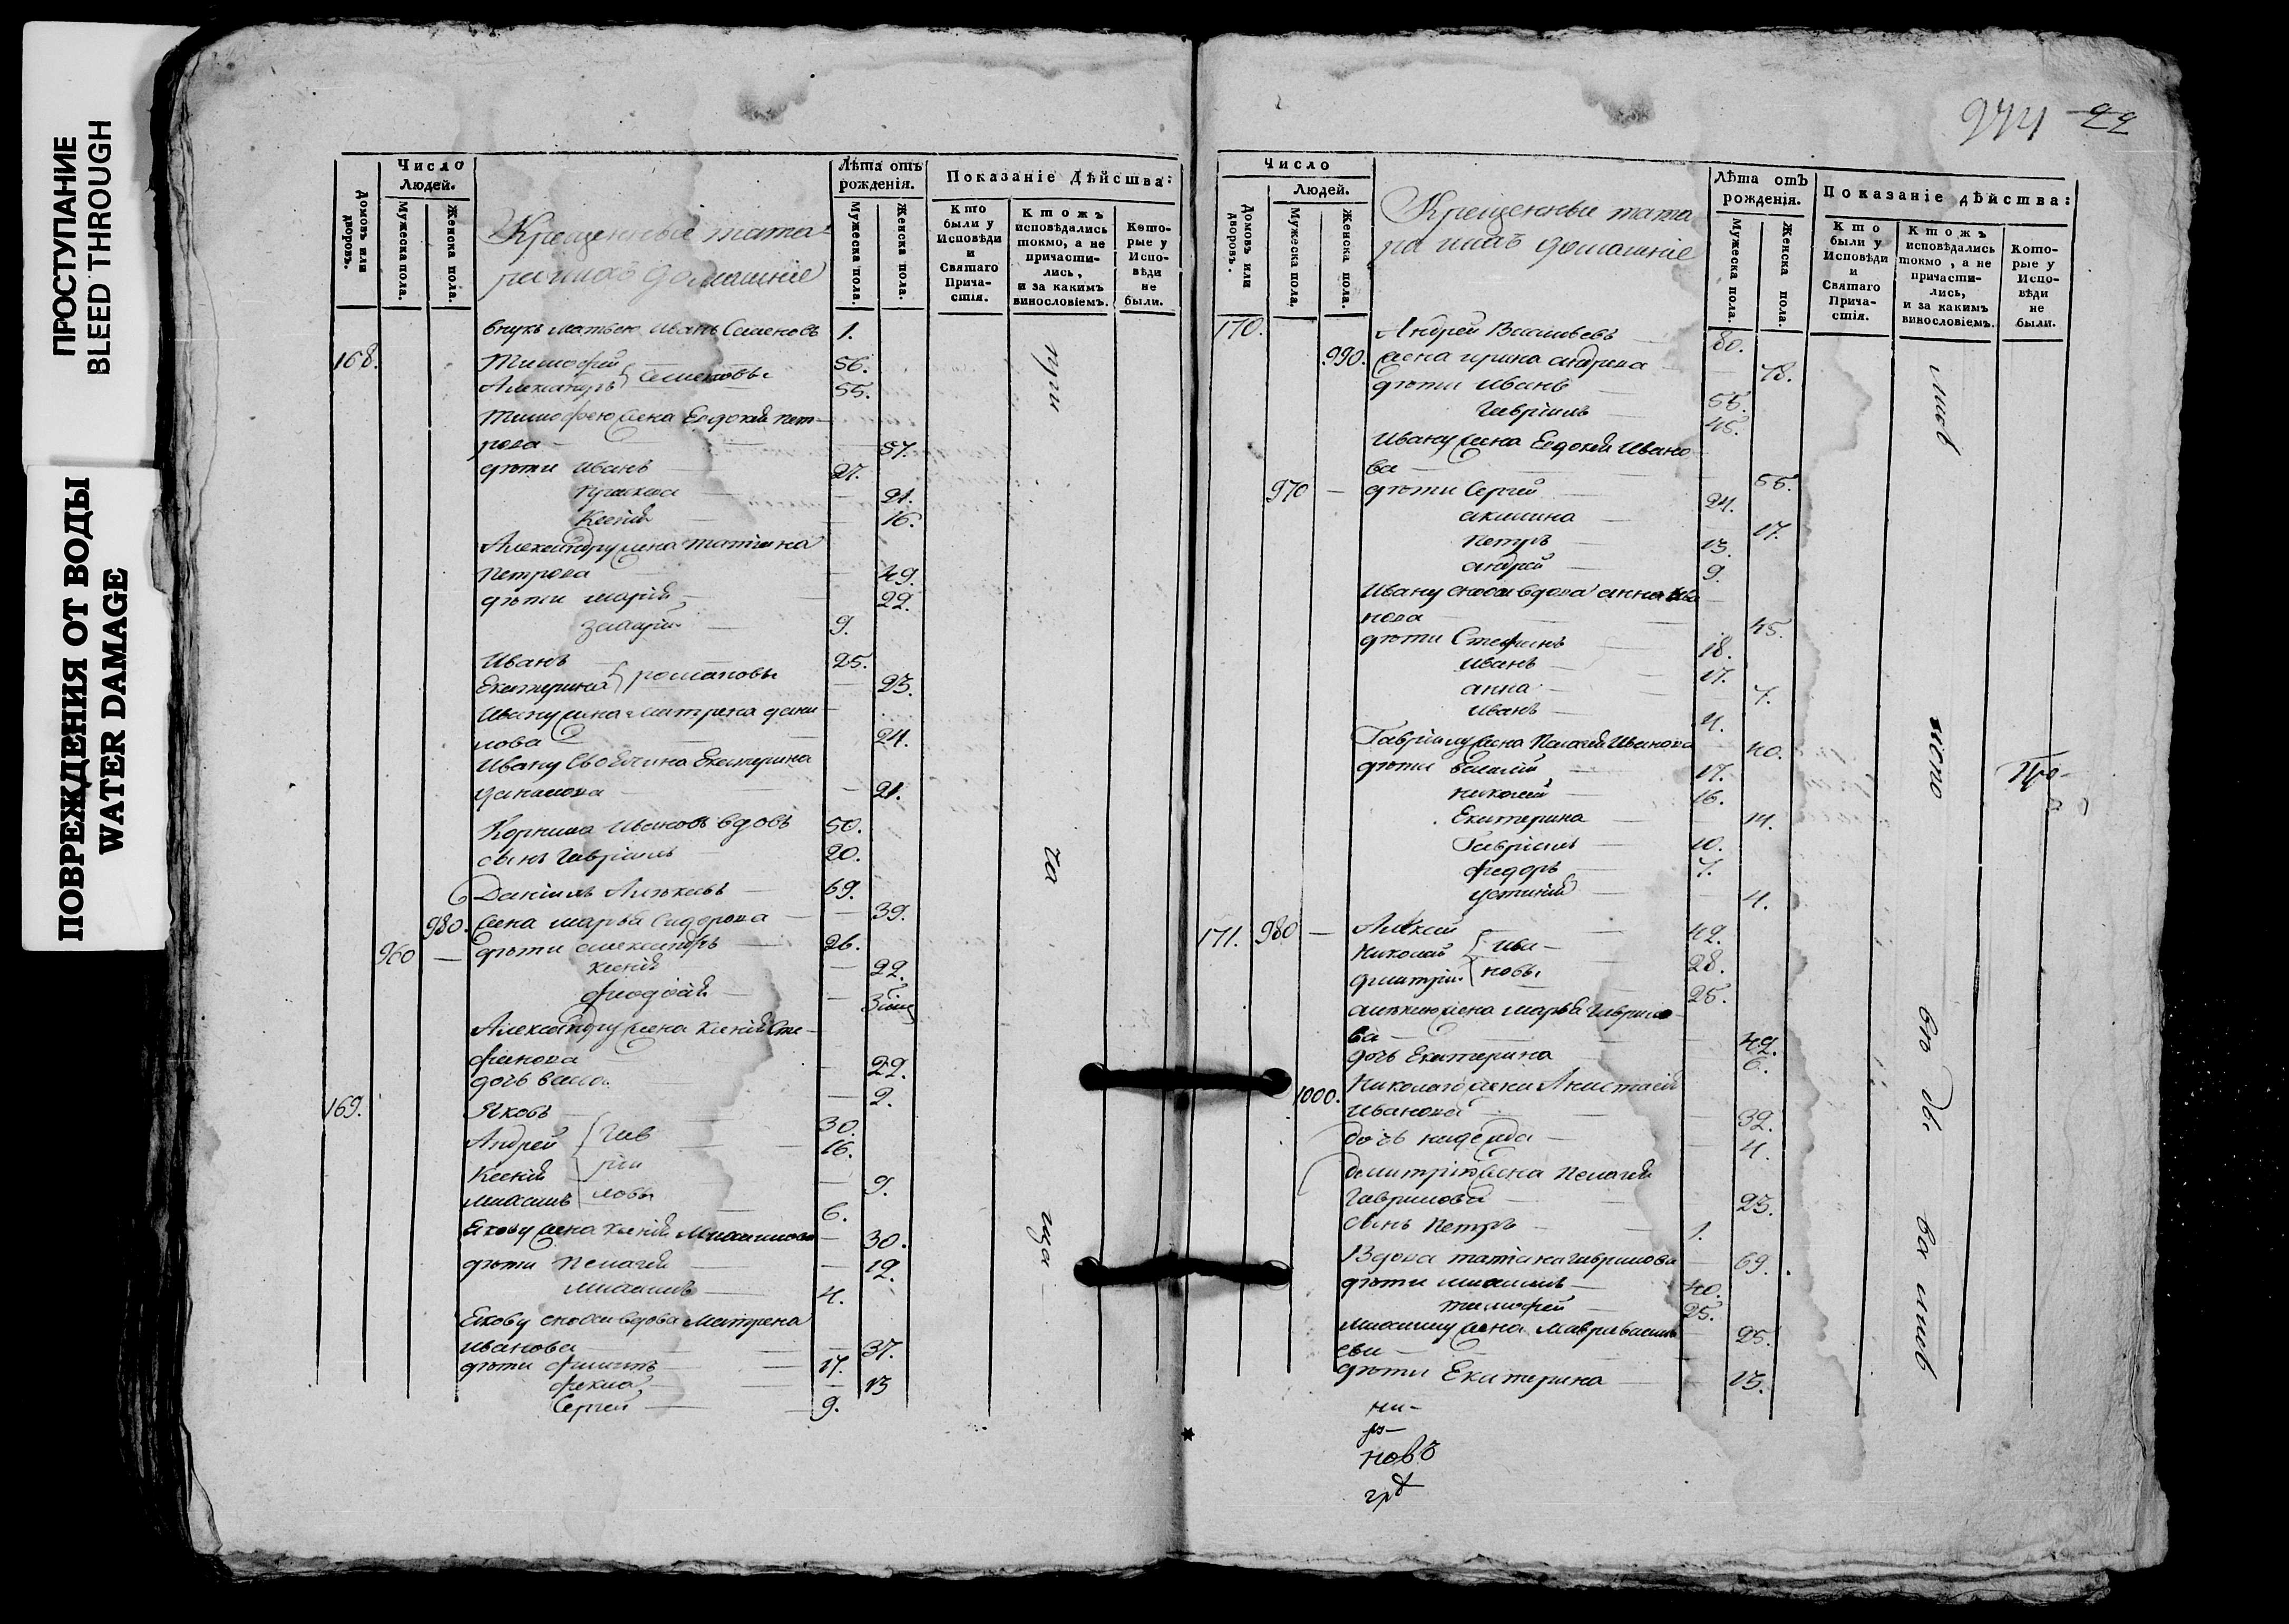 ПРОСТУПАНИЕ
BLEED THROUGH
ПОВРЕЖДЕНИЯ ОТ ВОДЫ
WATER DAMAGE
Число
Людей.
Домовъ или дворовъ.
Мужеска пола.
Женска пола.
Крещенные тата-
ра ихъ домашніе
Лѣта отъ рожденія.
Мужеска пола.
Женска пола.
Показаніе Дѣйства:
Кто были у Исповѣди и Святаго Прича-стія.
Ктожъ исповѣдались токмо, а не причасти-лись, и за какимъ винословіемъ.
Кото-рые у Испо-вѣди не были.
внукъ Иванъ Семеновъ 1.
168. Тимофей 56.
Александръ Семеновы 55.
Тимофею жена Евдокія Пет-
рова 57.
дѣти Иванъ 27.
21.
Ксенія 16.
Александру жена Татіана
Петрова 49.
дѣти Марія 22.
Захарій 9.
Иванъ 25.
Екатерина Романовы 23.
Ивану жена Матрена дани
лова 24.
Ивану жена Екатерина
Данилова 21.
Корнила Ивановъ вдовъ 50.
сынъ Гавріилъ 20.
Даніилъ Алексѣевъ 69.
980. жена Марья Сидорова 39.
960 — дѣти Александръ 26.
Ксенія 22.
Феодосія
Александру жена Ксенія Сте-
фанова 22.
дочь 2.
169. Яковъ 30.
Андрей Гав 16.
Ксенія ріи 9.
Михаилъ ловы 6.
Якову жена Ксенія Михаилова 30.
дѣти Пелагея 12.
Михаилъ 4.
Якову сноха вдова Матрена
Иванова 37.
дѣти Филиппъ 17.
Фекла 13
Сергей 9.
при
ча
ща
274 22
Число
Людей.
Домовъ или дворовъ.
Мужеска пола.
Женска пола.
Крещенные тата
ра ихъ домашніе
Лѣта отъ рожденія.
Мужеска пола.
Женска пола.
Показаніе дѣйства:
Кто были у Исповѣди и Святаго Прича-стія.
Ктожъ исповѣдались токмо, а не причасти-лись, и за какимъ винословіемъ.
Кото-рые у Испо-вѣди не были.
170. Андрей Васильевъ 80.
990. жена Ирина Андреева 78.
дѣти Иванъ 55.
Гавріилъ 45.
Ивану жена Евдокія Ивано
ва 55.
970 — дѣти Сергей 24.
Акилина 17.
Петръ 13.
Андрей 9.
Ивану сноха вдова Анна Ива
нова 45.
дѣти Стефанъ 18.
Иванъ 17.
Анна 7.
Иванъ 4.
Гавріилу жена Пелагея Иванова 40.
дѣти Василій 17.
Николай 16.
Екатерина 14.
Гавріилъ 10.
Федоръ 7.
Устинія 4.
171. 980 — Алексѣй 42.
Николай Ива- 28.
Дмитрій новы 25.
Алексѣю жена Марья Гаврило-
ва 42.
дочь Екатерина 6.
1000. Николаю жена Анастасія
Иванова 32.
дочь Надежда 4.
Димитрію жена Пелагея
Гаврилова 23.
сынъ Петръ 1.
Вдова Татіана Гаврилова 69.
дѣти Михаилъ 40.
Тимофей 25.
Михаилу жена Мавра Василь
ева 25.
дѣти Екатерина 13.
ни-
новъ